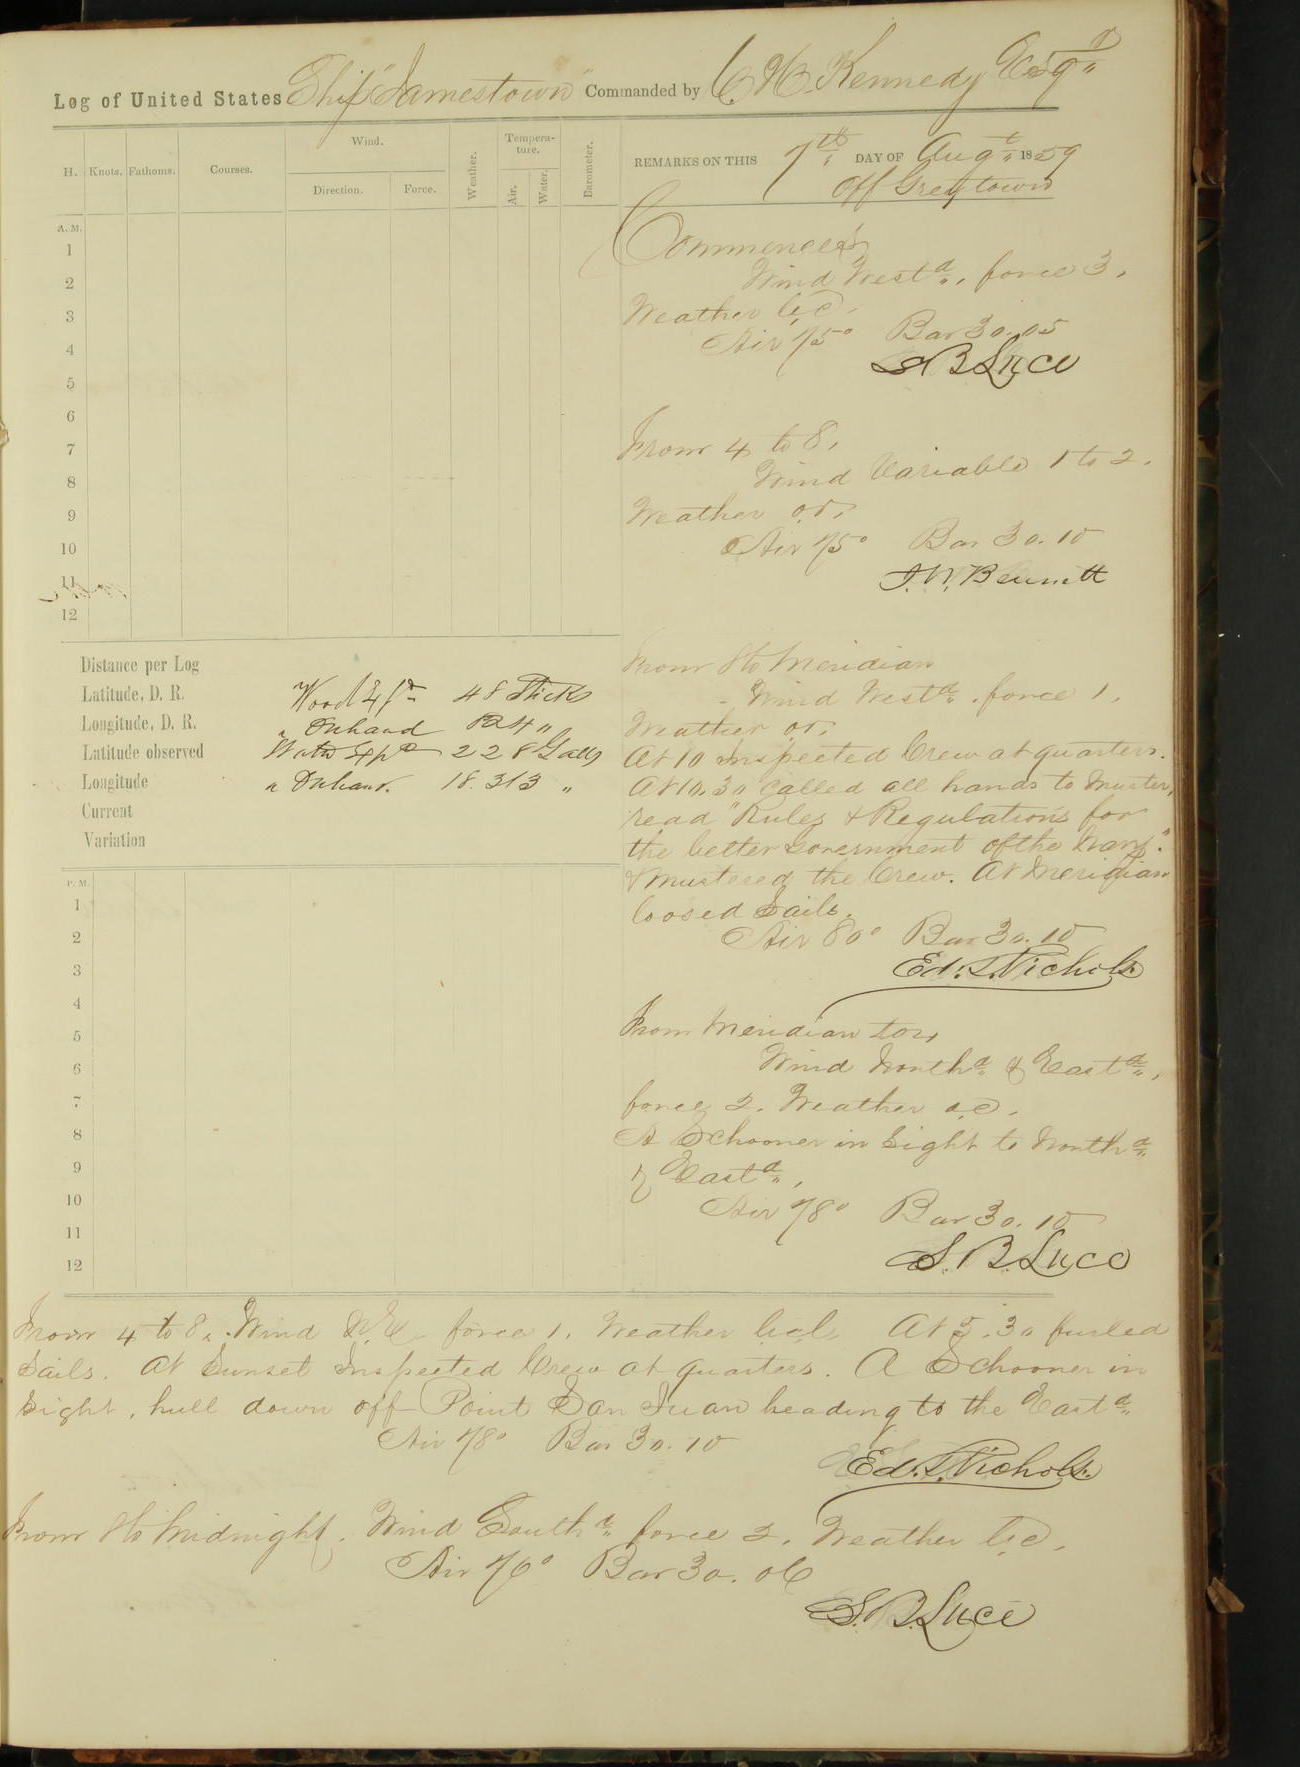 Log of United States Ship "Jamestown" Commanded by C. H. Kennedy Esqr
H. Knots. Fathoms. Courses. Wind. Direction. Force. Weather. Tempera-ture. Air. Water. Barometer.
REMARKS ON THIS 7th DAY OF Augt 1859
Off Greytown
A. M.
1
2
3
4
5
6
7
8
9
10
11
12
Commences
Wind Westd, force 3,
Weather b.c.
Air 75° Bar 30.05
S B Luce
From 4 to 8,
Wind Variable 1 to 2.
Weather o.r.
Air 75° Bar 30.10
J. W. Bennett
Distance per Log
Latitude, D. R.
Longitude, D. R.
Latitude observed
Longitude
Current
Variation
Wood Expd 48 Sticks
" Onhand "
Water Expd 228 Galls
" Onhand. 18.313 "
From 8 to Meridian
Wind Westd. force 1.
Weather o.r.
At 10 inspected Crew at quarters.
At 10.30 called all hands to muster,
read "Rules & Regulations for
the better Government of the Navy."
& mustered the Crew. At Meridian
loosed Sails.
Air 80° Bar 30.10
Ed. T. Nichols.
P. M.
1
2
3
4
5
6
7
8
9
10
11
12
From Meridian to 4
Wind Northd & Eastd,
force 2. Weather o.c.
A Schooner in sight to Northd
& Eastd,
Air 78° Bar 30.10
S. B. Luce
From 4 to 8, Wind N.E. force 1. Weather b.c.l. At 5.30 furled
Sails. At Sunset Inspected Crew at quarters. A Schooner in
sight, hull down off Point San Juan heading to the Eastd
Air 78° Bar 30.10
Ed. T. Nichols.
From 8 to Midnight. Wind Southd force 2. Weather b.c.
Air 76° Bar 30.06
S. B. Luce